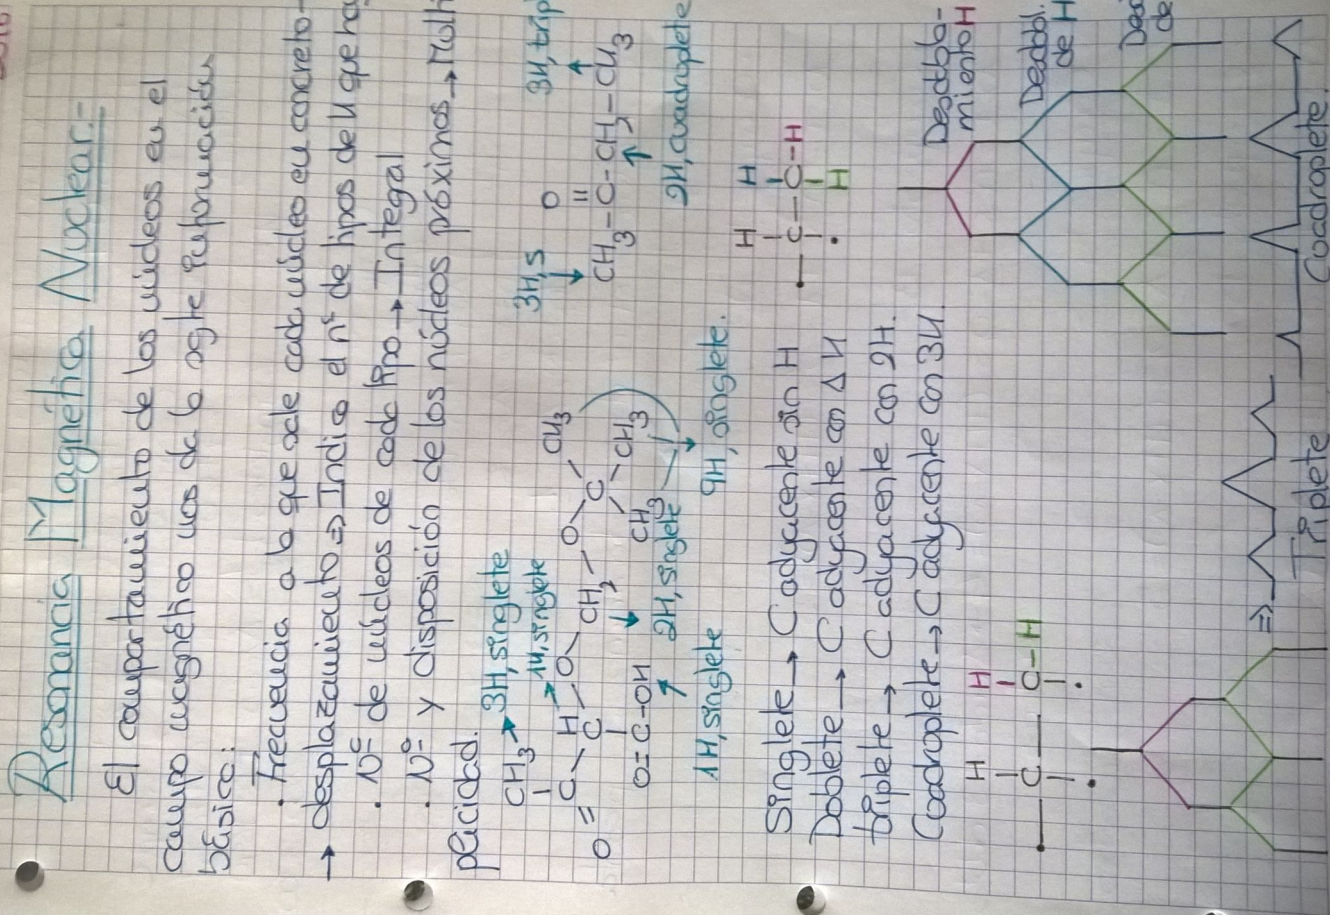 Resonancia Magnética Nuclear.-
El comportamiento de los núcleos en el
campo magnético nos da la sgte información
básica:
· Frecuencia a la que sale cada núcleo en concreto
→ desplazamiento ⇒ Indica el nº de tipos de H que
· Nº de núcleos de cada tipo → Integral
· Nº y disposición de los núcleos próximos → Multi
plicidad.
CH3 → 3H, singlete
1H, singlete
O=C-C-O-CH2-O-C-CH3
H
CH3
CH3
O=C-OH
2H, singlete
9H, singlete.
1H, singlete
3H, s
O
CH3-C-CH2-CH3
3H, trip
2H, cuadroplete
Singlete → C adyacente sin H
Doblete → C adyacente con 1H
triplete → C adyacente con 2H.
Cuadroplete → C adyacente con 3H.
H H
C-C-H
⇒
Triplete
H H
C-C-H
H
Desdobla-
miento H
Desdobl.
de H
Des
de
Cuadroplete.